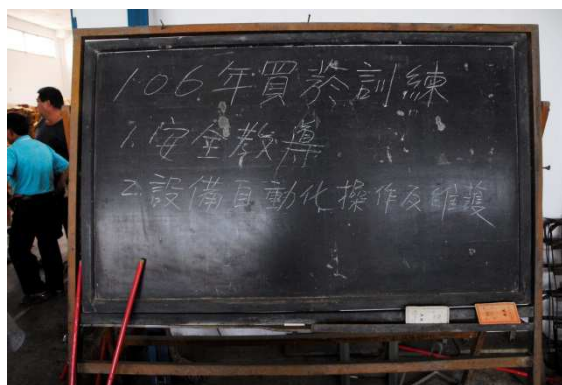 106年買菸訓練
1.安全教薰
2.設備自動化操作及維護